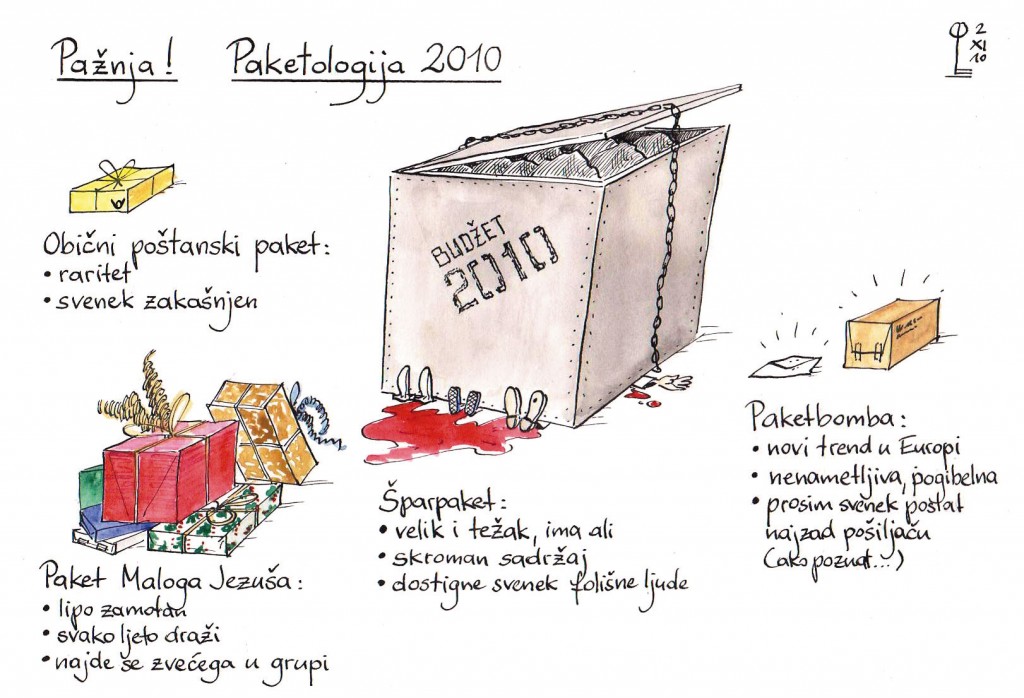 Pažnja! Paketologija 2010
2
XI
10
Obični poštanski paket:
• raritet
• svenek zakašnjen
BUDŽET
2010
Paket Maloga Jezuša:
• lipo zamotan
• svako ljeto draži
• najde se zvećega u grupi
Šparpaket:
• velik i težak, ima ali
• skroman sadržaj
• dostigne svenek folišne ljude
Paketbomba:
• novi trend u Europi
• nenametljiva, pogibelna
• prosim svenek poštat
najzad pošiljaču
(ako poznat...)